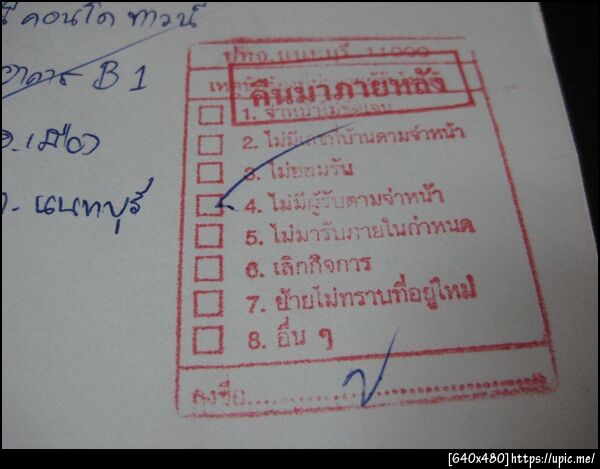 คอนโด ทาวน์
B 1
อ.เมือง
จ. นนทบุรี
ปทจ.นนทบุรี 11000
คืนมาภายหลัง
1. จ่าหน้าไม่ชัดเจน
2. ไม่มีเลขที่บ้านตามจ่าหน้า
3. ไม่ยอมรับ
4. ไม่มีผู้รับตามจ่าหน้า
5. ไม่มารับภายในกำหนด
6. เลิกกิจการ
7. ย้ายไม่ทราบที่อยู่ใหม่
8. อื่น ๆ
ลงชื่อ
[640x480]https://upic.me/